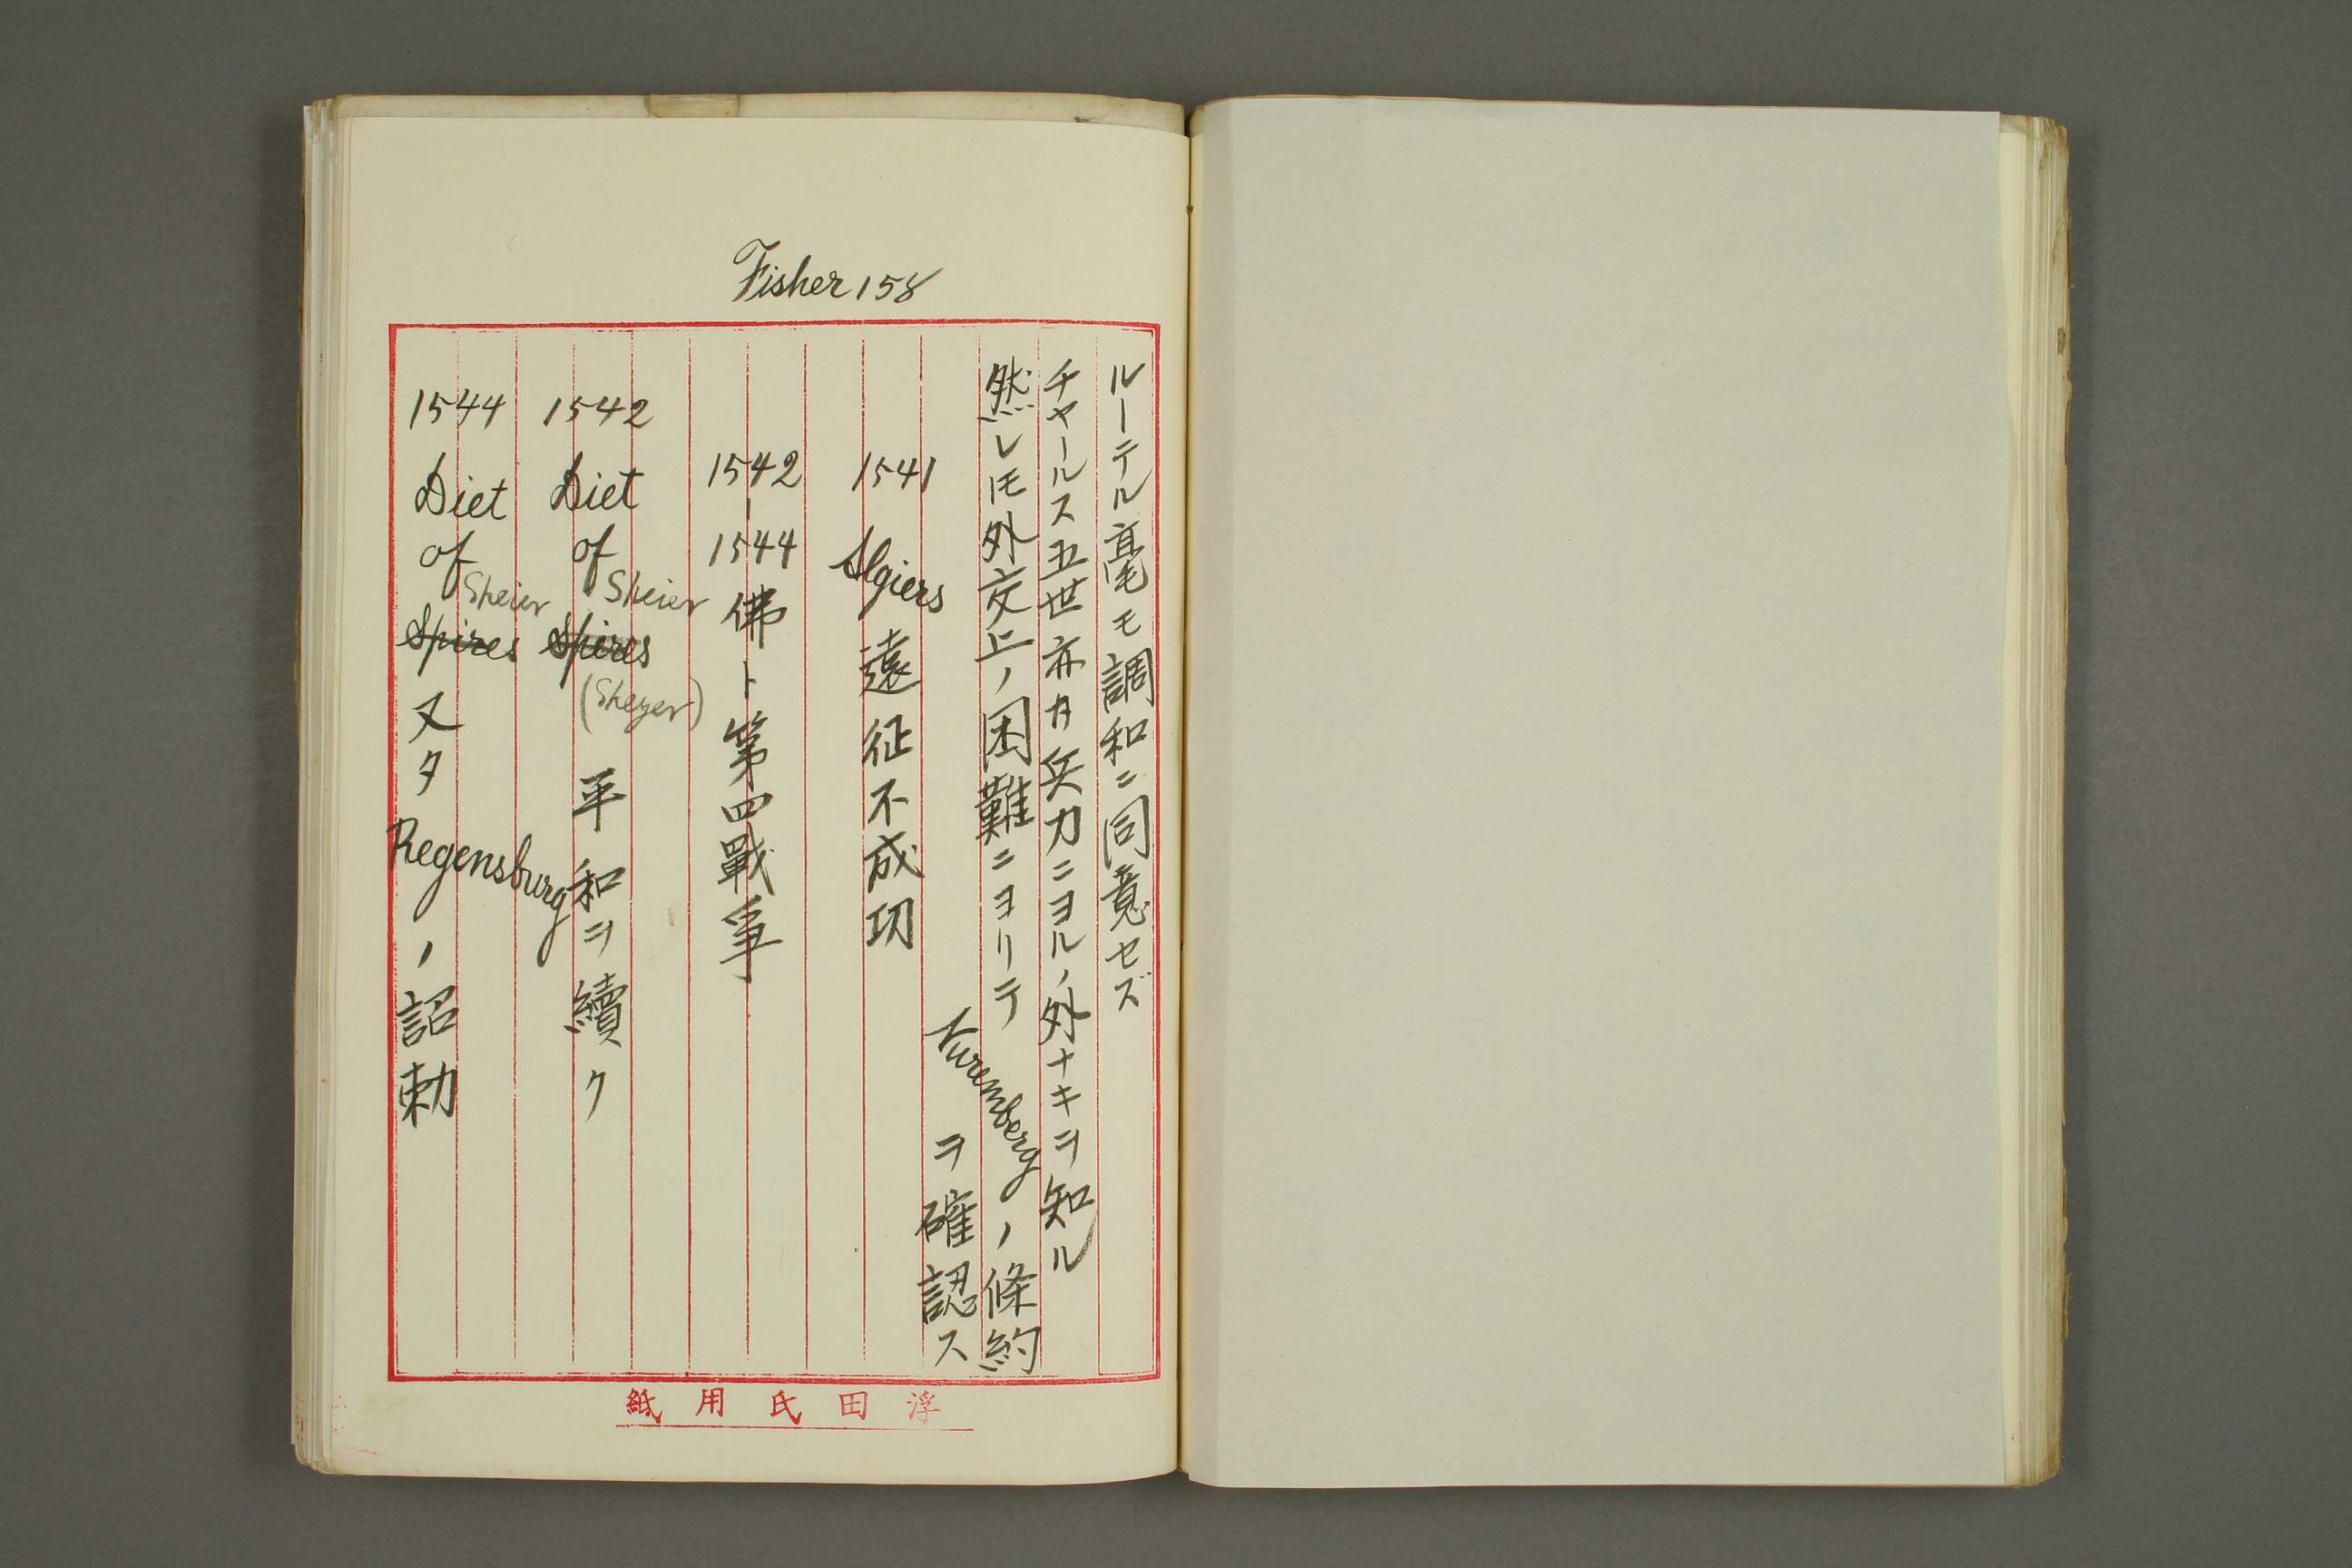 Fisher 158
ルーテル毫モ調和ニ同意セズ
チャールス五世亦タ兵力ニヨルノ外ナキヲ知ル
然レ𪜈外交上ノ困難ニヨリテ Nuremberg ノ條約
ヲ確認ス
1541 Algiers 遠征不成功
1542-1544 佛ト第四戰爭
1542 Diet of Spires Speier (Speyer) 平和ヲ續ク
1544 Diet of Spires Speier 又タ Regensburg ノ詔勅
浮田氏用紙